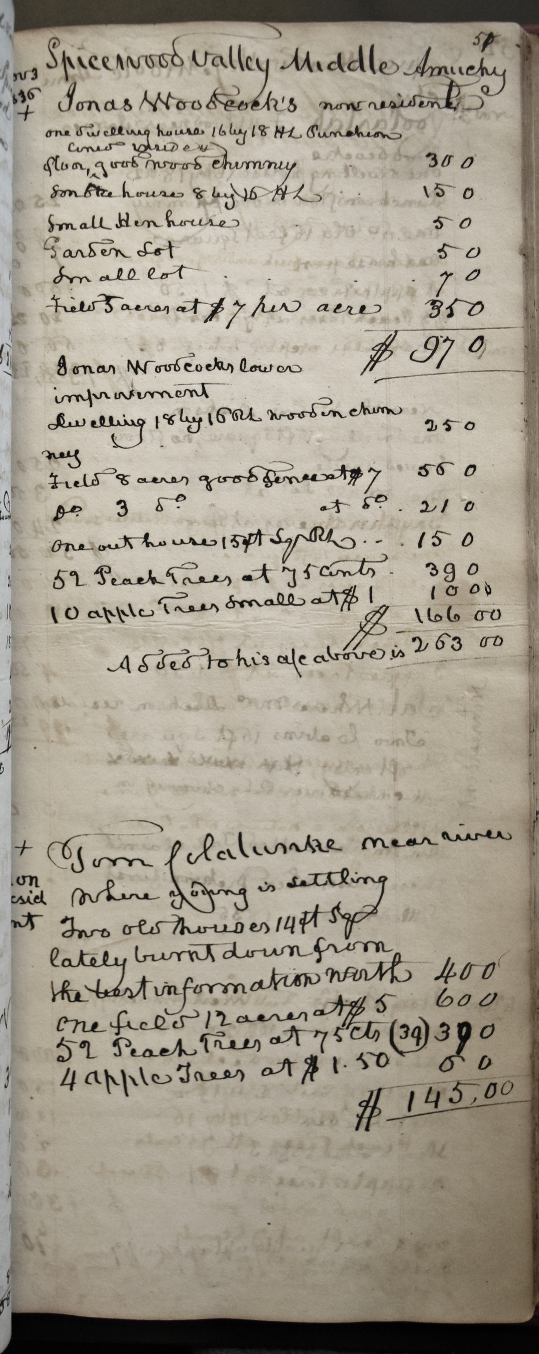 51
Spicewood Valley Middle Amuchy
Nov 3
836
+ Jonas Woodcock's now resident
one dwelling house 16 by 18 HL Puncheon
lined inside
floor, good wood chimney 30 0
Smoke house 8 by 16 HL 15 0
Small Hen house 5 0
Garden Lot 5 0
Small lot . . . . 7 0
Field 5 acres at $7 per acre 35 0
$ 97 0
Jonas Woodcocks lower
improvement
Dwelling 18 by 16 RL wooden chim
ney 25 0
Field 8 acres good fence at $7 56 0
Do 3 do at do . 21 0
One out house 15ft Sqr RL . . . 15 0
52 Peach Trees at 75 cents . 39 0
10 apple Trees Small at $1 10 00
$ 166 00
Added to his a/c above is 263 00
+ Tom Colalunke near river
on
esid
nt
Where young is settling
Two old houses 14ft Sqr
lately burnt down from
the best information worth 40 0
One field 12 acres at $5 60 0
52 Peach Trees at 75 cts (39) 39 0
4 apple Trees at $1.50 6 0
$ 145,00